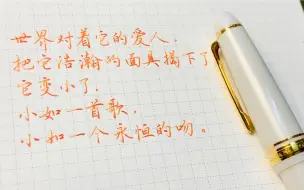 世界对着它的爱人，
把它浩瀚的面具揭下了
它变小了，
小如一首歌，
小如一个永恒的吻。